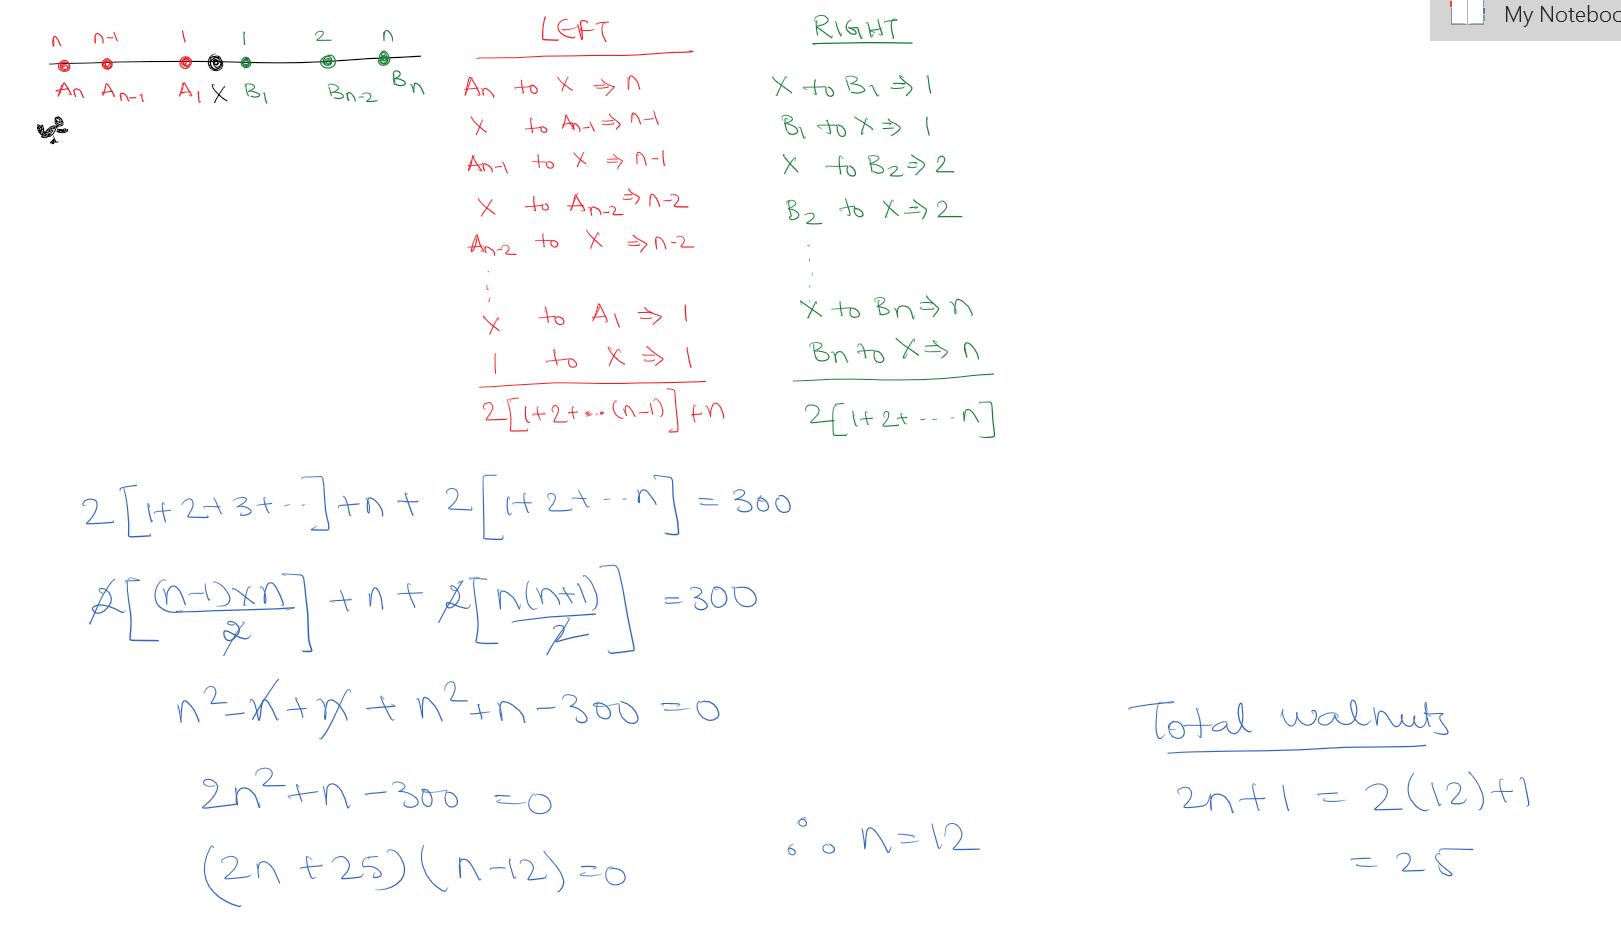 My Noteboo
n n-1 1 1 2 n
An An-1 A1 X B1 Bn-2 Bn
LEFT
An to X ⇒ n
X to An-1 ⇒ n-1
An-1 to X ⇒ n-1
X to An-2 ⇒ n-2
An-2 to X ⇒ n-2
X to A1 ⇒ 1
1 to X ⇒ 1
2[1+2+...(n-1)] +n
RIGHT
X to B1 ⇒ 1
B1 to X ⇒ 1
X to B2 ⇒ 2
B2 to X ⇒ 2
X to Bn ⇒ n
Bn to X ⇒ n
2[1+2+----n]
2[1+2+3+--]+n+ 2[1+2+---n] = 300
2[(n-1)xn/2] +n+ 2[n(n+1)/2] =300
n²-n+n+n²+n-300=0
2n²+n-300 =0
(2n+25)(n-12)=0
∴ n=12
Total walnuts
2n+1 = 2(12)+1
= 25